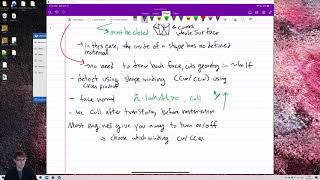 must be closed
covers
whole surface
- in this case, the inside of a shape has no defined
material
- no need to draw back face, cuts geometry in ~half
- detect using shape winding (CW/CCW) using
cross product
- face normal
n̂ · lookAt > 0, cull
- we cull after transforms before rasterization
Most engines give you a way to turn on/off
→ choose which winding CW/CCW